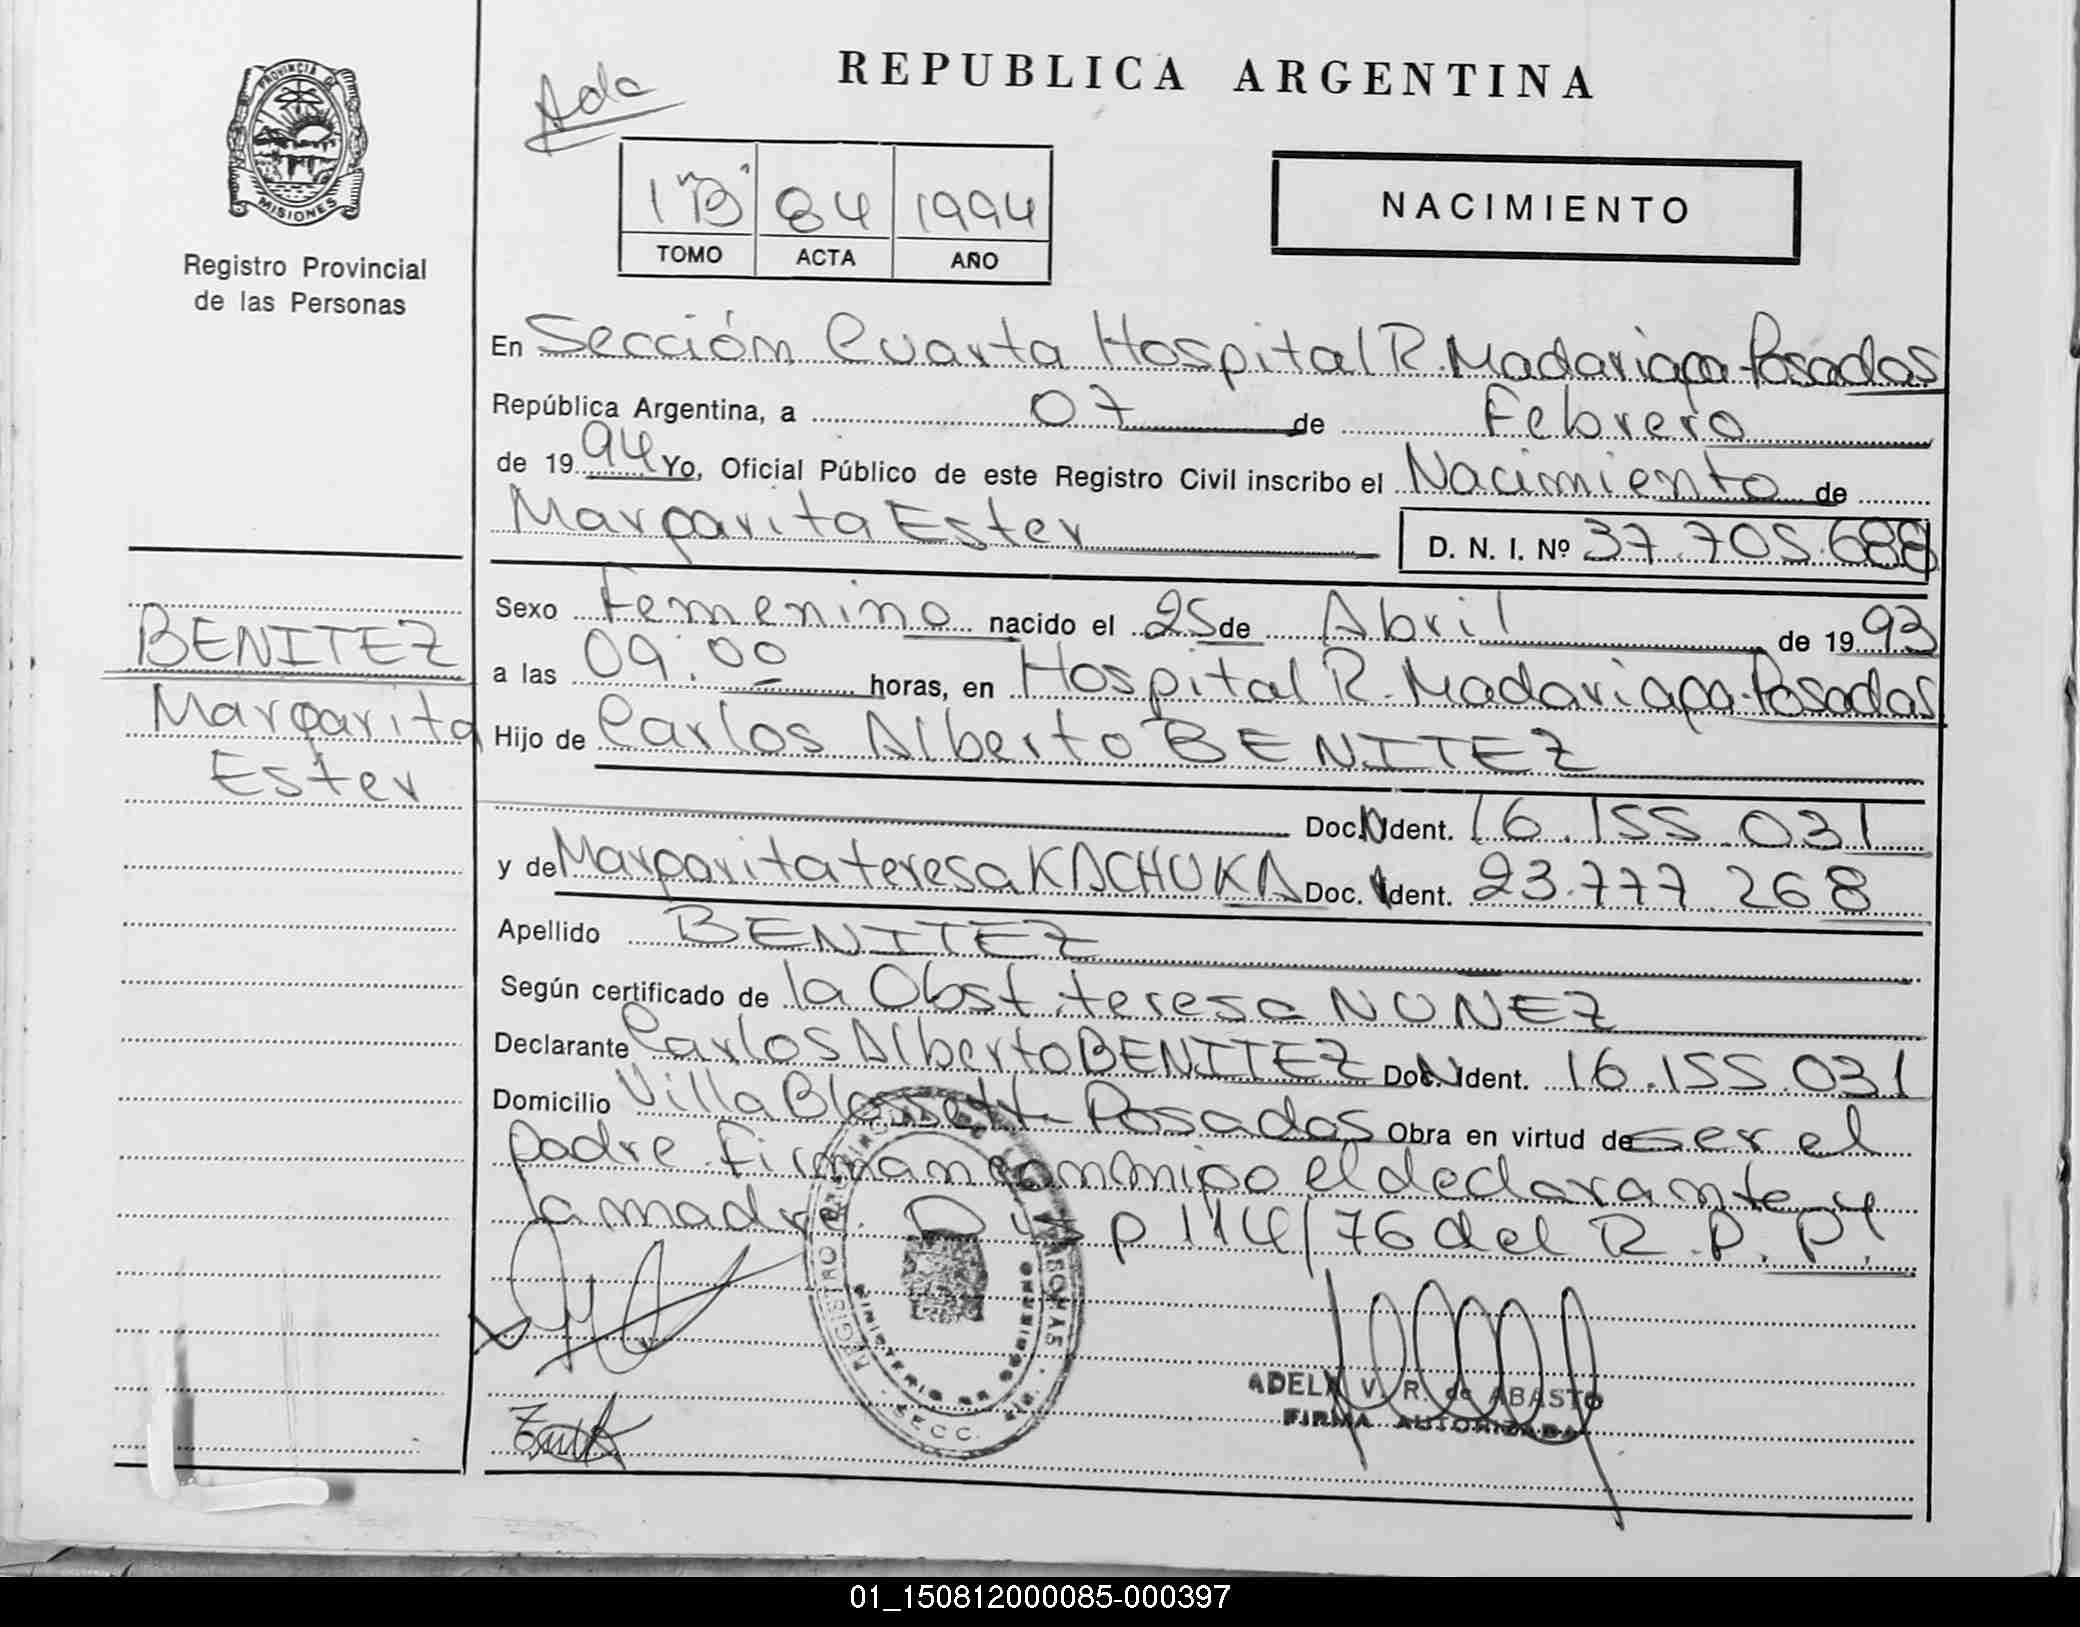 PROVINCIA DE
MISIONES
Registro Provincial
de las Personas
Ada
REPUBLICA ARGENTINA
1 "B" 84 1994
TOMO ACTA AÑO
NACIMIENTO
En Sección Cuarta Hospital R. Madariaga-Posadas
República Argentina, a 07 de Febrero
de 1994 Yo, Oficial Público de este Registro Civil inscribo el Nacimiento de
Margarita Ester D. N. I. Nº 37.705.688
Sexo Femenino nacido el 25 de Abril de 1993
a las 09:00 horas, en Hospital R. Madariaga-Posadas
Hijo de Carlos Alberto BENITEZ
Doc. N Ident. 16.155.031
y de Margarita teresa KACHUKA Doc. Ident. 23.777.268
Apellido BENITEZ
Según certificado de la Obst. teresa NUÑEZ
Declarante Carlos Alberto BENITEZ Doc. N Ident. 16.155.031
Domicilio Villa Blossett - Posadas Obra en virtud de ser el
padre. firman conmigo el declarante y
la madre. Disp 114/76 del R.P.P.
BENITEZ
Margarita
Ester
REGISTRO
MINISTERIO DE GOBIERNO
SECC.
ADELA V. R. de ABASTO
FIRMA AUTORIZADA
01_150812000085-000397